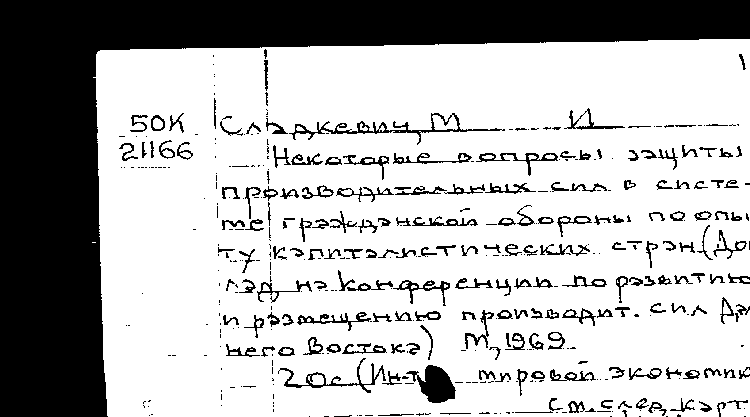 1
50К Сладкевич, М И
21166 Некоторые вопросы защиты
производительных сил в систе-
ме гражданской обороны по опы
ту капиталистических стран (До
лад на конференции по развитию
и размещению производит. сил Да
него Востока) М, 1969.
20с (Ин-т мировой экономик
см. след. карт